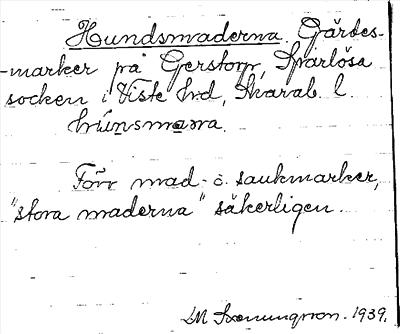 Hundsmaderna. Gärdes-
-marker på Gerstorp, Sparlösa
socken i Viste hrd, Skarab. l.
húnsmarra.
Förr mad- o. saukmarker,
"stora maderna" säkerligen.
LM Svenungsson. 1939.